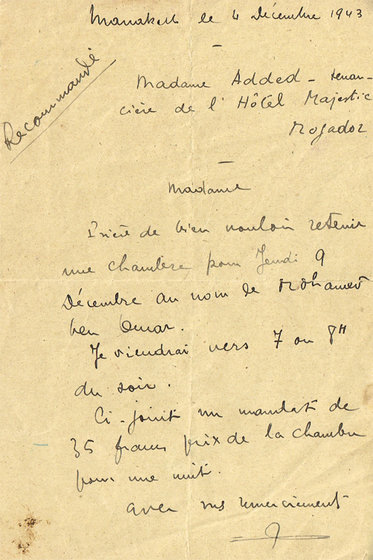 Marrakech le 4 Décembre 1943
Recommandé
Madame Added - tenan-
cière de l'Hôtel Majestic
Mogador
Madame
Prière de bien vouloir retenir
une chambre pour Jeudi 9
Décembre au nom de Mohamed
ben Omar.
Je viendrai vers 7 ou 8H
du soir.
Ci-joint un mandat de
35 francs prix de la chambre
pour une nuit.
avec mes remerciements